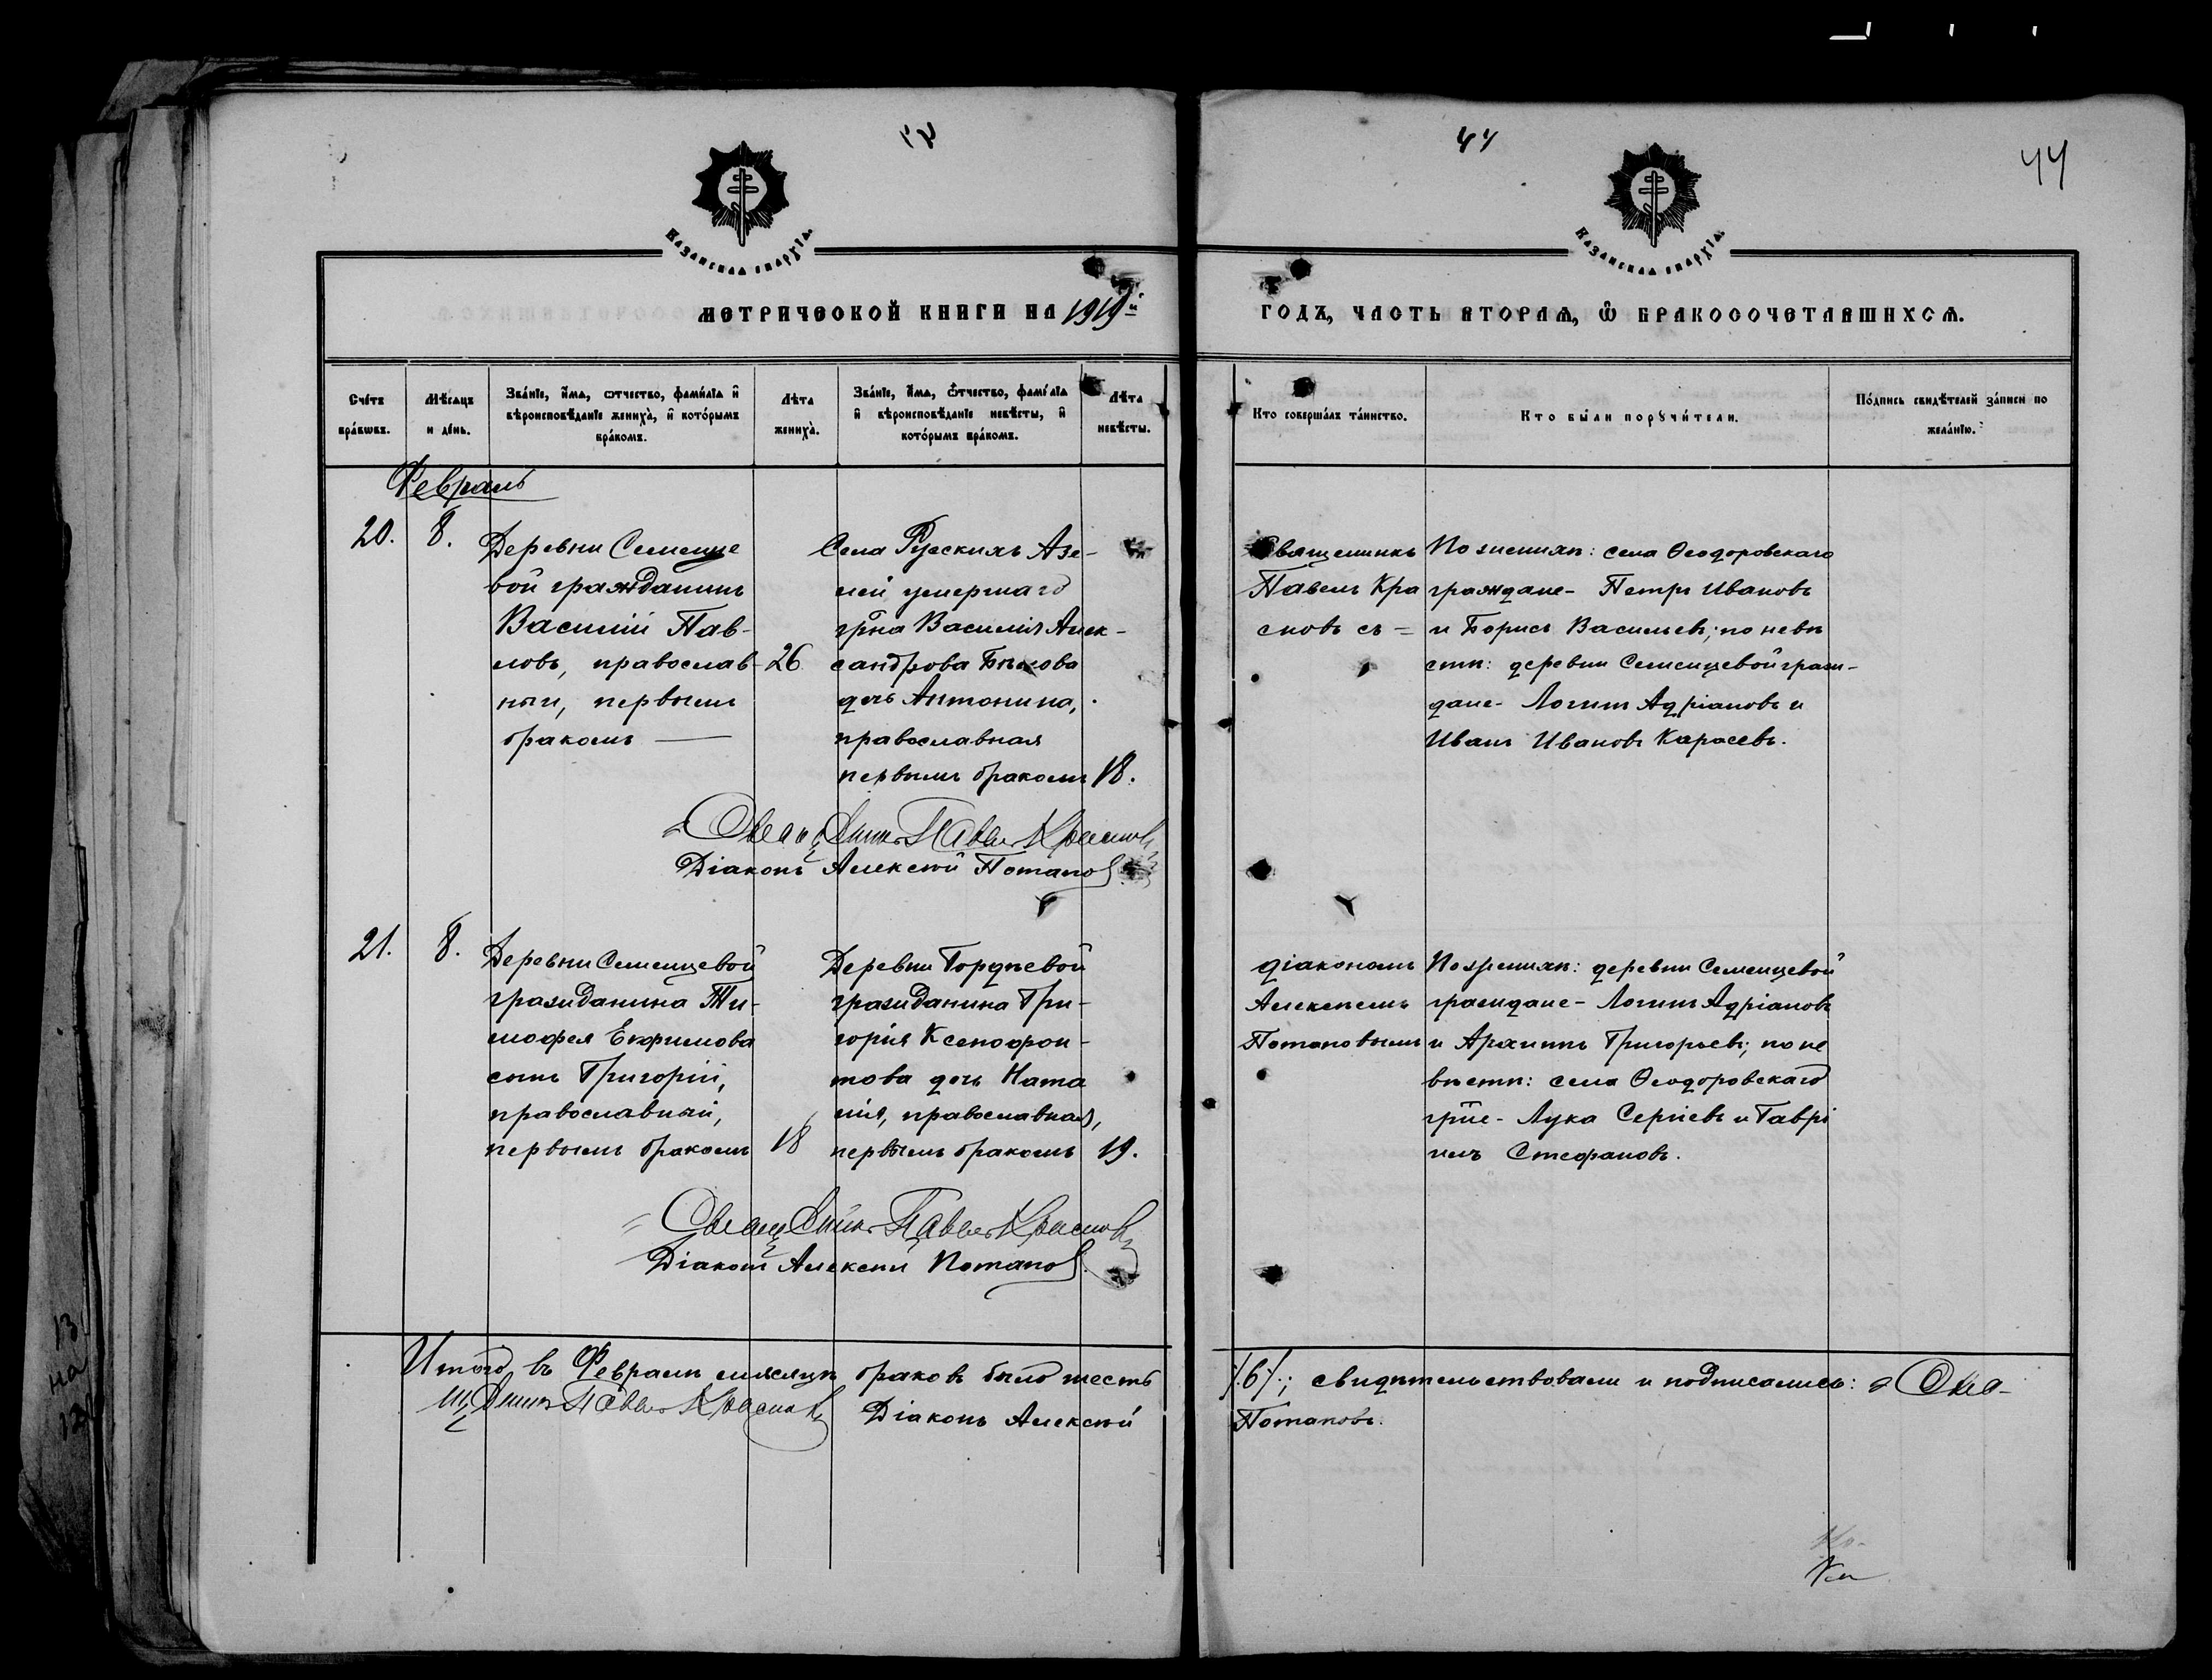 44
44
Казанская епархія.
Казанская епархія.
МЕТРИЧЕСКОЙ КНИГИ НА 1919й
ГОДЪ, ЧАСТЬ ВТОРАЯ, Ѿ БРАКОСОЧЕТАВШИХСЯ.
Сче́тъ бра́ковъ.
Мѣ́сяцъ и де́нь.
Зва́нїе, и҆́мя, ѻтчество, фами́лїа и҆ вѣроисповѣ́данїе жениха̀, и҆ кото́рымъ бра́комъ.
Лѣта жениха̀.
Зва́нїе, и҆́мя, ѻтчество, фами́лїа и҆ вѣроисповѣ́данїе невѣ́сты, и҆ кото́рымъ бра́комъ.
Лѣта невѣ́сты.
Кто соверша́лъ та́инство.
Кто бы́ли порꙋчи́тели.
По́дпись свидѣ́телей за́писи по жела́нїю.
Февраль
20.
8.
Деревни Семенце
вой гражданинъ
Василій Пав-
ловъ, православ-
ный, первымъ
бракомъ —
26
Села Русскихъ Азе-
лей умершаго
гр̅на Василія Алек-
сандрова Бѣлова
дочь Антонина,
православная
первымъ бракомъ
18.
Священникъ
Павелъ Кра
сновъ съ =
По женихѣ: села Ѳеодоровскаго
граждане - Петръ Ивановъ
и Борисъ Васильевъ; по невѣ
стѣ: деревни Семенцевой граж-
дане - Логинъ Адріановъ и
Иванъ Ивановъ Карасевъ.
Священникъ Павелъ Красновъ
Діаконъ Алексѣй Потаповъ
21.
8.
Деревни Семенцевой
гражданина Ти-
мофея Ефимова
сынъ Григорій,
православный,
первымъ бракомъ
18
Деревни Гордѣевой
гражданина Гри-
горія Ксенофон-
това дочь Ната
лія, православная,
первымъ бракомъ
19.
діакономъ
Алексѣемъ
Потаповымъ
По женихѣ: деревни Семенцевой
граждане - Логинъ Адріановъ
и Архипъ Григорьевъ; по не
вѣстѣ: села Ѳеодоровскаго
гр̅не - Лука Сергіевъ и Гаврі
илъ Стефановъ.
Священникъ Павелъ Красновъ
Діаконъ Алексѣй Потаповъ
Итого въ Февралѣ мѣсяцѣ браковъ было шесть /.6/.; свидѣтельствовали и подписались: Свя-
щенникъ Павелъ Красновъ Діаконъ Алексѣй Потаповъ.
13
на